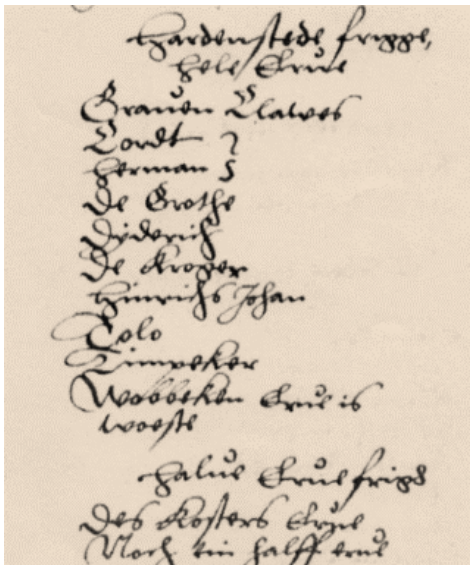 Hardenstede frigge,
hele Erue
Grauen Clawes
Cordt
Herman
De Grothe
Dyderich
De Kroger
Hinrichs Johan
Tolo
Timpeker
Wobbeken Erue is
woeste
halue Erue
Des Kosters Erue
Noch ein halff erue